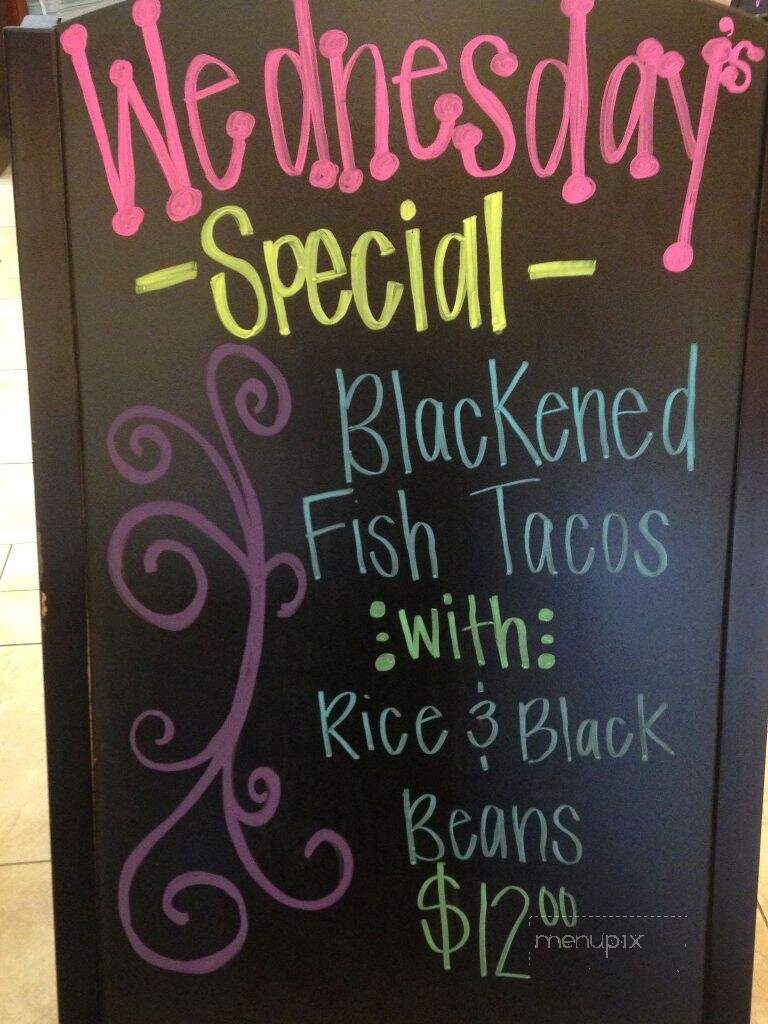 Wednesday's
- Special -
Blackened
Fish Tacos
:with:
Rice & Black
Beans
$12.00
menupix